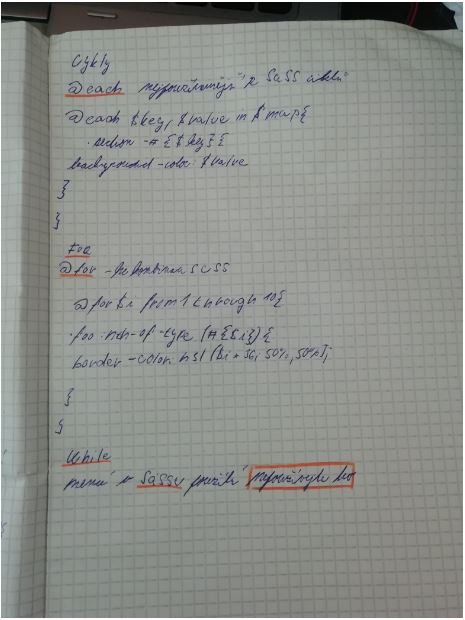 Cykly
@each nejpoužívanější z SaSS cyklů
@each $key, $value in $map{
.section-#{$key}{
background-color: $value
}
}
For
@for - lze kombinovat SCSS
@for $i from 1 through 10{
.foo:nth-of-type(#{$i}){
border-color: hsl($i * 36, 50%, 50%);
}
}
While
v Sassu použití nepoužívejte ho